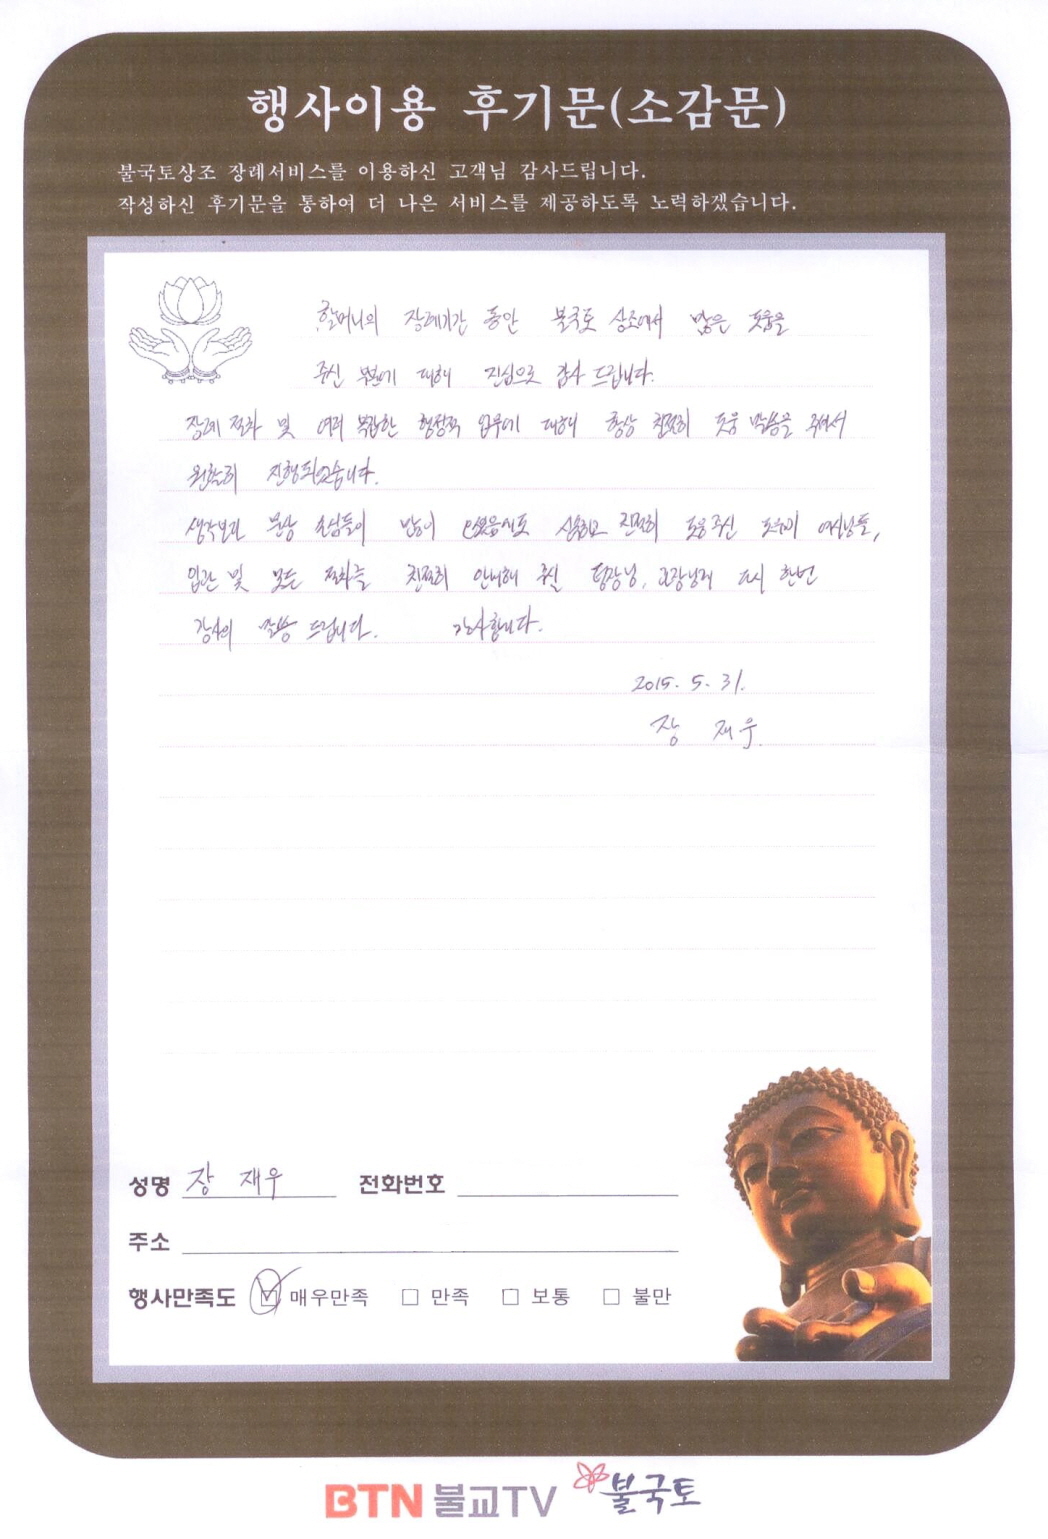 행사이용 후기문(소감문)
불국토상조 장례서비스를 이용하신 고객님 감사드립니다.
작성하신 후기문을 통하여 더 나은 서비스를 제공하도록 노력하겠습니다.
할머니의 장례기간 동안 불국토 상조에서 많은 도움을
주신 부분에 대해 진심으로 감사 드립니다.
장례 절차 및 여러 복잡한 행정적 업무에 대해 항상 친절히 도움 말씀을 주셔서
원활히 진행되었습니다.
생각보다 문상 손님들이 많이 있었음에도 친절히 도움주신 도우미 여사님들,
입관 및 모든 절차를 친절히 안내해 주신 팀장님, 다시 한번
감사의 말씀 드립니다. 감사합니다.
2015. 5. 31.
장 재우
성명 장 재우 전화번호
주소
행사만족도 매우만족 만족 보통 불만
BTN 불교TV 불국토